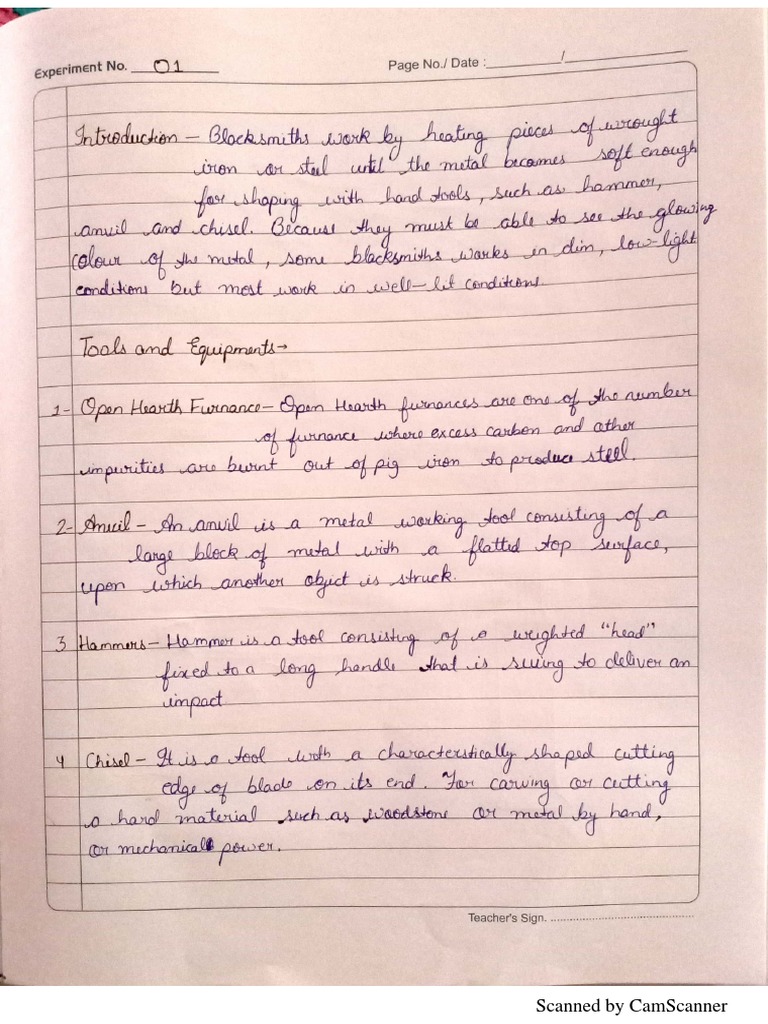 Experiment No. 01
Page No./ Date : /
Introduction - Blacksmiths work by heating pieces of wrought
iron or steel until the metal becomes soft enough
for shaping with hand tools, such as hammer,
anvil and chisel. Because they must be able to see the glowing
colour of the metal, some blacksmiths works in dim, low-light
conditions but most work in well-lit conditions.
Tools and Equipments→
1- Open Hearth Furnance- Open Hearth furnances are one of the number
of furnance where excess carbon and other
impurities are burnt out of pig iron to produce steel.
2- Anvil - An anvil is a metal working tool consisting of a
large block of metal with a flatted top surface,
upon which another object is struck.
3 Hammers- Hammer is a tool consisting of a weighted "head"
fixed to a long handle that is swing to deliver an
impact
4 Chisel - It is a tool with a characterstically shaped cutting
edge of blade on its end. For carving or cutting
a hard material such as woodstone or metal by hand,
or mechanical power.
Teacher's Sign.
Scanned by CamScanner